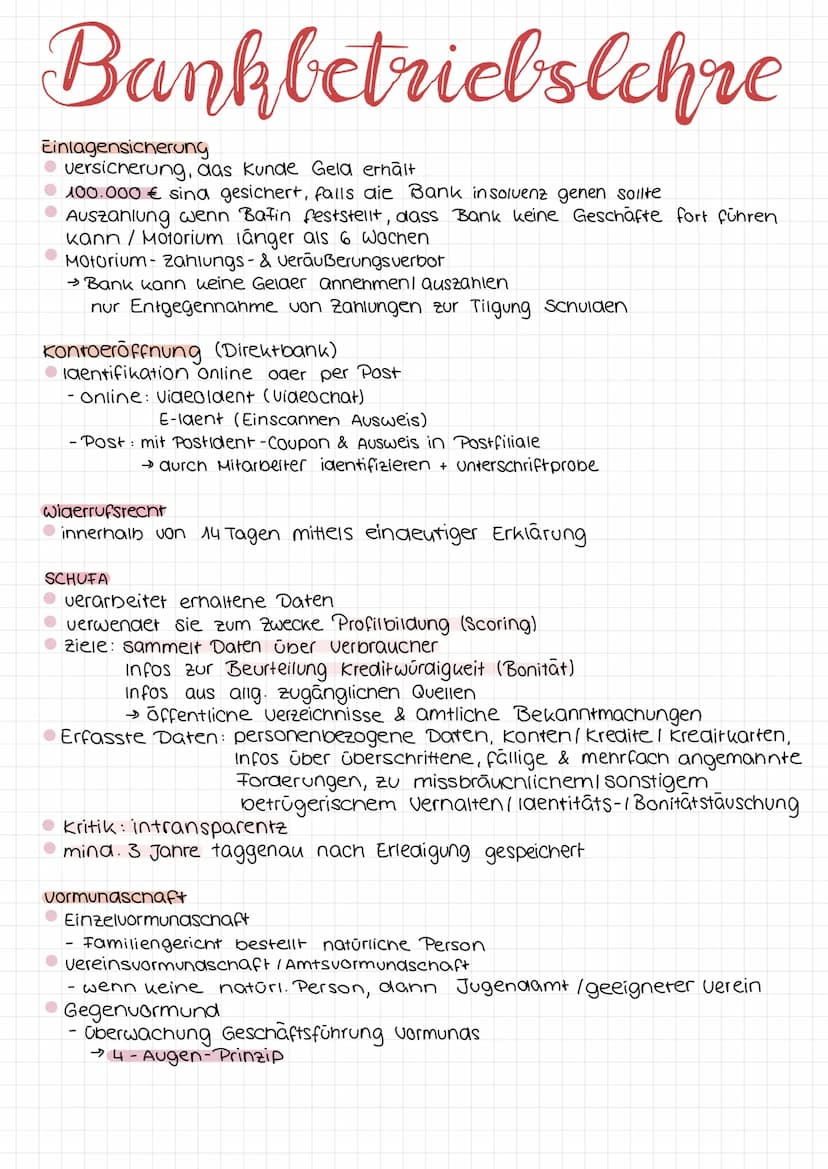 Bankbetriebslehre
Einlagensicherung
Versicherung, das Kunde Geld erhält
100.000 € sind gesichert, falls die Bank insolvenz gehen sollte
Auszahlung wenn Bafin feststellt, dass Bank keine Geschäfte fort führen
kann / Motorium länger als 6 Wochen
Motorium - Zahlungs - & Veräußerungsverbot
→ Bank kann keine Gelder annehmen / auszahlen
nur Entgegennahme von Zahlungen zur Tilgung Schulden
Kontoeröffnung (Direktbank)
Identifikation online oder per Post
- online: VideoIdent (Videochat)
E-Ident (Einscannen Ausweis)
- Post: mit PostIdent-Coupon & Ausweis in Postfiliale
→ durch Mitarbeiter identifizieren + Unterschriftprobe
Widerrufsrecht
innerhalb von 14 Tagen mittels eindeutiger Erklärung
SCHUFA
verarbeitet erhaltene Daten
verwendet sie zum Zwecke Profilbildung (Scoring)
Ziele: sammelt Daten über Verbraucher
Infos zur Beurteilung Kreditwürdigkeit (Bonität)
Infos aus allg. zugänglichen Quellen
→ öffentliche Verzeichnisse & amtliche Bekanntmachungen
Erfasste Daten: personenbezogene Daten, Konten / Kredite / Kreditkarten,
Infos über überschrittene, fällige & mehrfach angemahnte
Forderungen, zu missbräuchlichem / sonstigem
betrügerischem Verhalten / Identitäts- / Bonitätstäuschung
Kritik: intransparentz
mind. 3 Jahre taggenau nach Erledigung gespeichert
Vormundschaft
Einzelvormundschaft
- Familiengericht bestellt natürliche Person
Vereinsvormundschaft / Amtsvormundschaft
- wenn keine natürl. Person, dann Jugendamt / geeigneter Verein
Gegenvormund
- Überwachung Geschäftsführung Vormunds
→ 4 - Augen - Prinzip